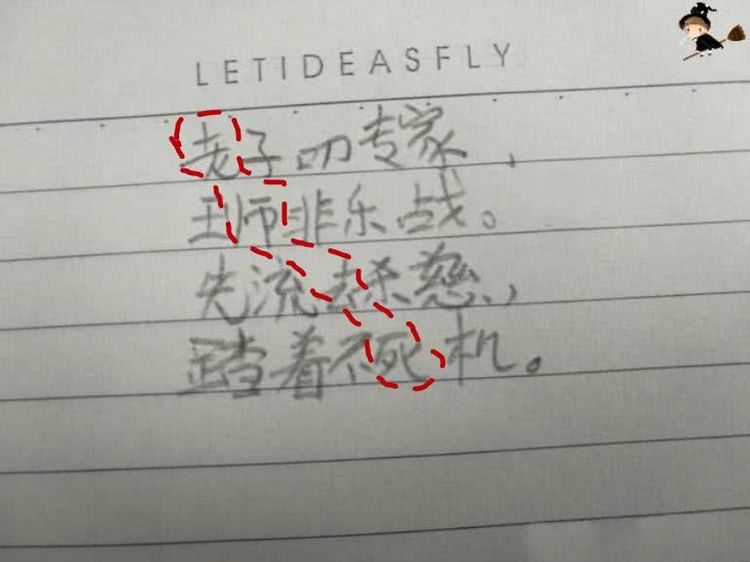 LETIDEASFLY
老子叩专家,
王师非乐战。
先流去杀慈,
踏着不死机。